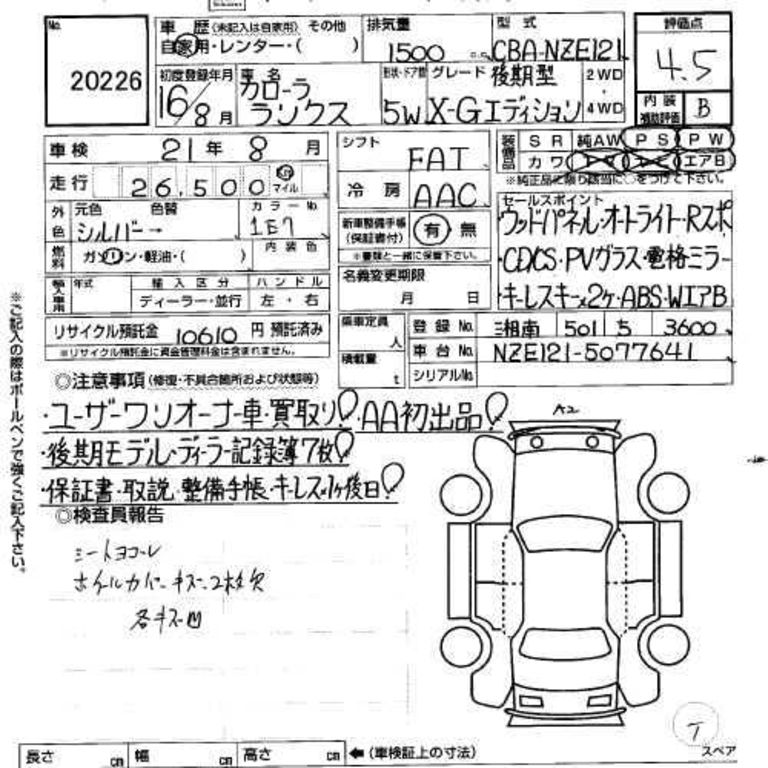 No. 20226
車歴(未記入は自家用) その他
自家用・レンター・( )
排気量 1500 c.c.
型式 CBA-NZE121
評価点 4.5
初度登録年月 16/8月
車名 カローラ ランクス
形状・ドア数 5W
グレード 後期型 X-Gエディション
2WD・4WD
内装補助評価 B
車検 21年 8月
シフト FAT
装備品 SR 純AW PS PW
カワ エアB
※純正品に限り該当に○をつけて下さい。
走行 26,500 マイル
冷房 AAC
外色 元色 色替 シルバー→
カラーNo. 1E7
新車整備手帳(保証書付) 有・無
※書類と一緒に保管下さい。
セールスポイント
ウッドパネル・オートライト・Rスポ
・CDCS・PVグラス・電格ミラー
・キーレスキー×2ケ・ABS・WエアB
燃料 ガソリン・軽油・( )
内装色
名義変更期限 月 日
輸入車用 年式 輸入区分 ハンドル
ディーラー・並行 左・右
リサイクル預託金 10610 円 預託済み
※リサイクル預託金に資金管理料金は含まれません。
乗車定員 人
積載量 t
登録No. 相南 501 5 3600
車台No. NZE121-5077641
シリアルNo.
◎注意事項(修復・不具合箇所および状態等)
・ユーザーワンオーナー車・買取り!・AA初出品!
・後期モデル・ディーラー記録簿7枚!
・保証書・取説・整備手帳・キーレス×1ヶ後日!
◎検査員報告
シートヨゴレ
ホイールカバーキズ・2枚欠
各キズ凹
A2
T
スペア
※ご記入の際はボールペンで強くご記入下さい。
長さ cm 幅 cm 高さ cm ←(車検証上の寸法)